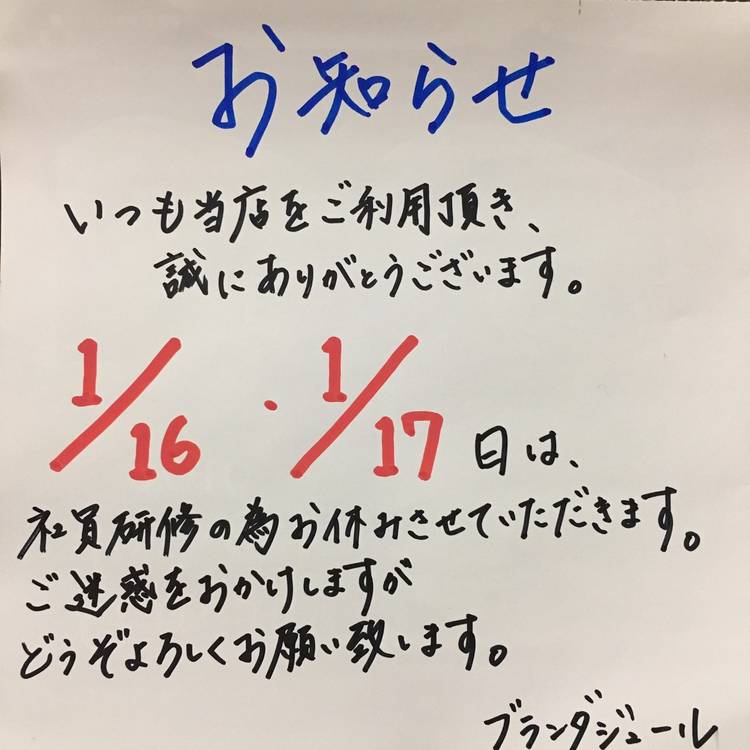 お知らせ
いつも当店をご利用頂き、
誠にありがとうございます。
1/16・1/17日は、
社員研修の為お休みさせていただきます。
ご迷惑をおかけしますが
どうぞよろしくお願い致します。
ブランダジュール